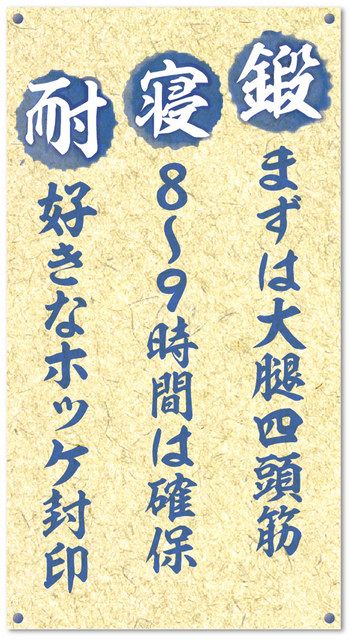 鍛
まずは大腿四頭筋
寝
8〜9時間は確保
耐
好きなホッケ封印